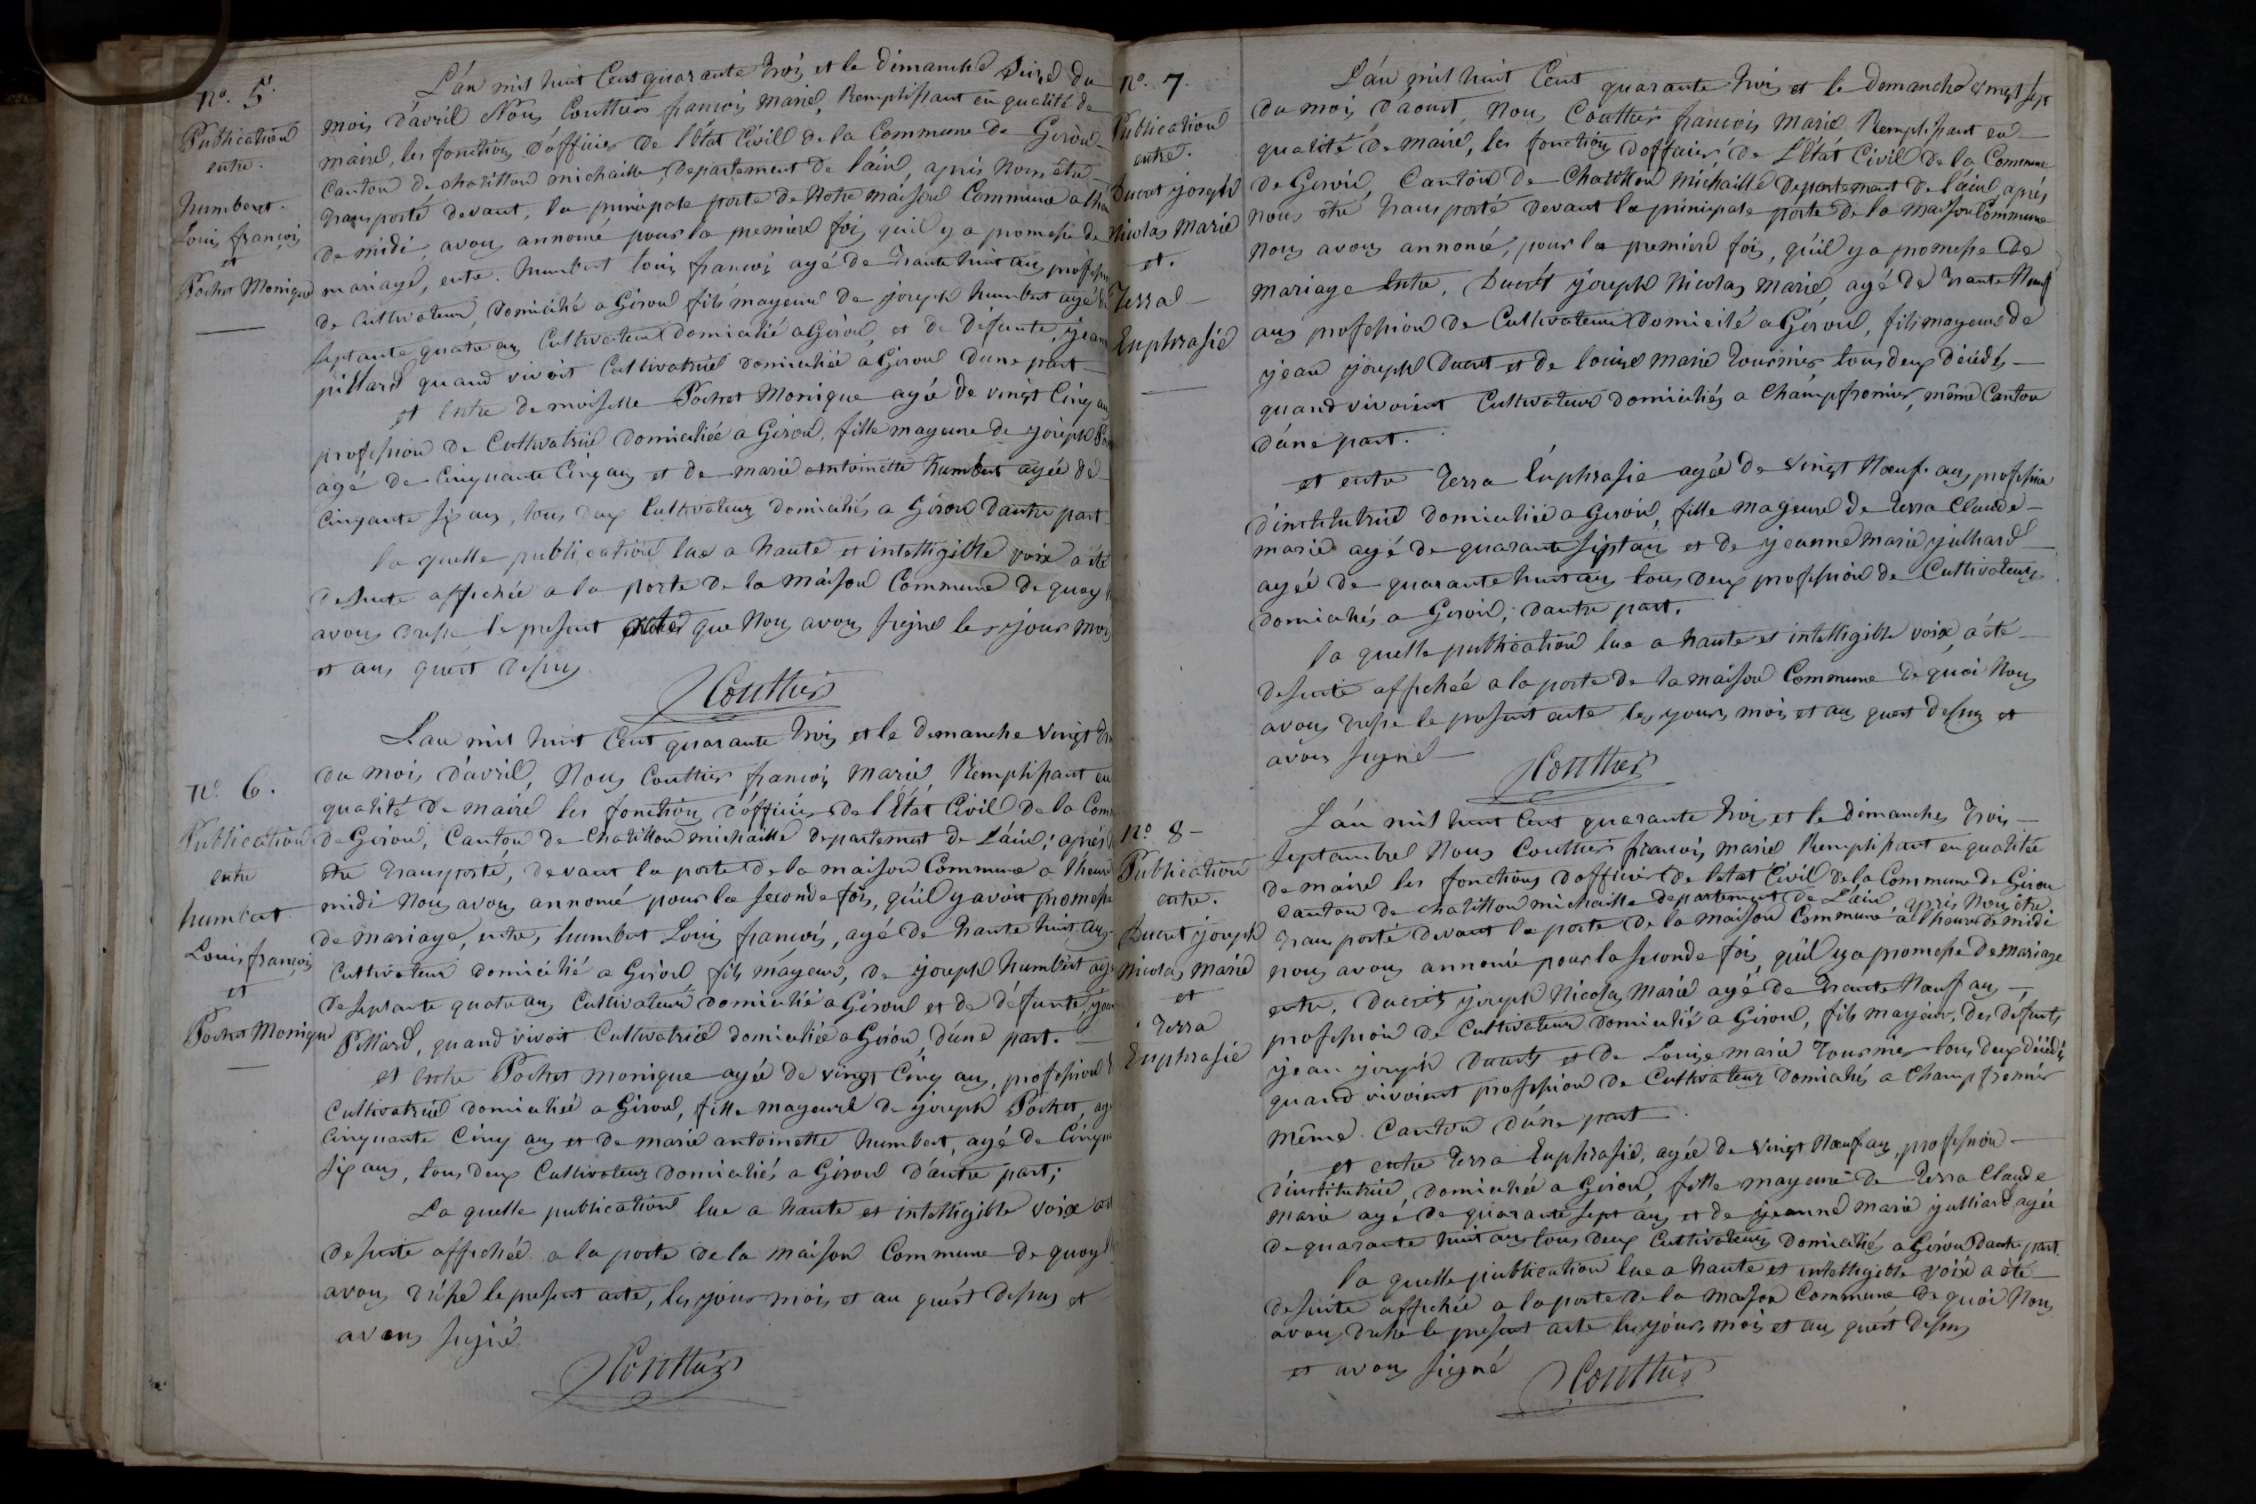 n°. 5.
Publication
entre.
humbert.
Louis françois
et
Pochet Monique
L'án mil huit Cent quarante trois et le dimanche Seize du
mois d'avril Nous Couttier françois marie, Remplissant en qualité de
maire, les fonctions d'officier de l'État Civill de la Commune de Giron
Canton de chatillon michaille, departement de l'áin, aprés nous être
transporté devant, la principale porte de Notre maison Commune a lheu
de midi, avons annoncé pour la premiere fois, quil y a promesse de
mariage, entre. humbert louis françois agé de trante huit ans profession
de cultivateur, domicilié a Giron fils mayeur de joseph humbert agé de
septante quatre ans Cultivateur domicilié a Giron, et de Défunte, jean
pillard quand vivoit Cultivatrice domiciliée a Giron dune part
et Entre demoiselle Pochet Monique agée de vingt Cinq ans
profession de Cultivatrice domiciliée a Giron, fille mayeure de joseph Po
agé de Cinquante Cinq ans et de marie antoinette humbert agée de
Cinquante six ans, tous deux Cultivateurs domiciliés a Giron dautre part
la quelle publication lue a haute et intelligible voix a été
desuite affichée a la porte de la maison Commune de quoy
avons dresse le present acte que Nous avons signé les jours mois
et ans quést dessus
Couttier
n°. 6.
Publication
entre
humbert
Louis françois
et
Pochet Monique
L'an mil huit Cent quarante trois et le dimanche vingt
du mois d'avril, Nous Couttier françois marie, Remplissant en
qualité de maire les fonctions d'officier de l'État Civil de la Com
de Giron, Canton de Chatillon michaille departement de L'áin, aprés
être transporté, devant la porte de la maison Commune a lheure
midi Nous avons annoncé pour la seconde fois, quíl y avoit promesse
de mariage, entre, humbert Louis françois, agé de trante huit ans
Cultivateur domicilié a Giron fils mayeur, de joseph humbert agé
de septante quatre ans Cultivateur domicilié a Giron et de défunte, jean
Pillard, quand vivoit Cultivatrice domiciliée a Giron, dúne part.
et Entre Pochet monique agée de vingt Cinq ans, profession
Cultivatrice domiciliée a Giron, fille mayeure de joseph Pochet, ag
Cinquante Cinq ans et de marie antoinette humbert, agé de Cinqu
six ans, tous deux Cultivateurs domiciliés a Giron d'autre part;
La quelle publication lue a haute et intelligible voix a
desuite affichée a la porte de la maison Commune de quoy
avons dréssé le present acte, les jours mois et an quést dessus et
avons signé
Couttier
n°. 7.
Publication
entre.
Ducret joseph
Nicolas Marie
et.
Terra
Euphrasie
L'án mil huit Cent quarante trois et le demanche vingt sept
du mois d'aoust, Nous Couttier françois marie Remplissant en
qualité de maire, les fonctions d'officier, de L'État Civil de la Commune
de Giron, Canton de Chatillon michaille departement de l'áin, aprés
nous être transporté devant la principale porte de la maison Commune
nous avons annoncé, pour la premiere fois, quíl y a promesse de
mariage Entre, Ducrét joseph Nicolas marie, agé de trante Neuf
ans profession de Cultivateur domicilié a Giron, fils mayeur de
jean joseph Ducret et de louise marie Tournier tous deux décédés
quand vivoient Cultivateurs domiciliés a Champfromier, même Canton
dúne part.
et entre Terra Euphrasie agée de vingt Nœuf ans, profession
d'institutrice domiciliée a Giron, fille mageure de Terra Claude
marie agé de quarante sept ans et de jeanne marie julliard
agée de quarante huit ans tous deux profession de Cultivateurs
domiciliés a Giron, dautre part.
la quelle publication lue a haute et intelligible voix, a été
desuite affichée a la porte de la maison Commune de quoi Nous
avons dressé le present acte les jours mois et an quést dessus et
avons signé
Couttier
n° 8
Publication
entre.
Ducret joseph
Nicolas marie
et
Terra
Euphrasie
L'án mil huit Cent quarante trois et le dimanche, trois
septambre Nous Couttier françois marie Remplissant en qualitée
de maire les fonctions d'officier de létat Civil de la Commune de Giron
Canton de chatillon michaille departement de L'áin, aprés Nous être
transporté devant la porte de la maison Commune a lheure de midi
nous avons annoncé pour la seconde fois, quíl y a promesse de mariage
entre, Ducrét joseph Nicolas Marie agé de trante Nœuf ans
profession de Cultivateur domicilié a Giron, fils mayeur, des défunts
jean joseph Ducrét et de Louise marie Tournier tous deux décédés
quand vivoient profession de Cultivateurs domiciliés a Champfromier
même Canton dúne part
et entre Terra Euphrasie, agée de vingt Nœuf ans, profession
d'institutrice, domiciliée a Giron, fille mayeure de Terra Claude
marie agé de quarante sept ans et de jeanne marie julliard agée
de quarante huit ans tous deux Cultivateurs domiciliés a Giron dautre part
la quelle publication lue a haute et intelligible voix a été
desuite affichée a la porte de la maison Commune de quoi Nous
avons dressé le present acte les jours mois et ans quést dessus
et avons signé
Couttier